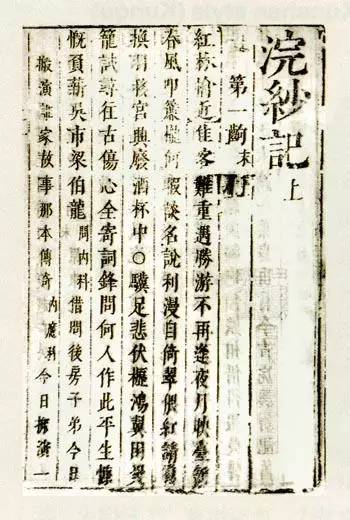 浣紗記上
第一齣 末
紅林檎近佳客難重遇勝游不再逢夜月映臺館
春風叩簾櫳何暇談名說利漫自倚翠偎紅請看
換羽移宮興廢酒杯中○驥足悲伏櫪鴻翼困樊
籠試尋往古傷心全寄詞鋒問何人作此平生慷
慨負薪吳市梁伯龍問內科借問後房子弟今日
搬演誰家故事那本傳奇內應科今日搬演一